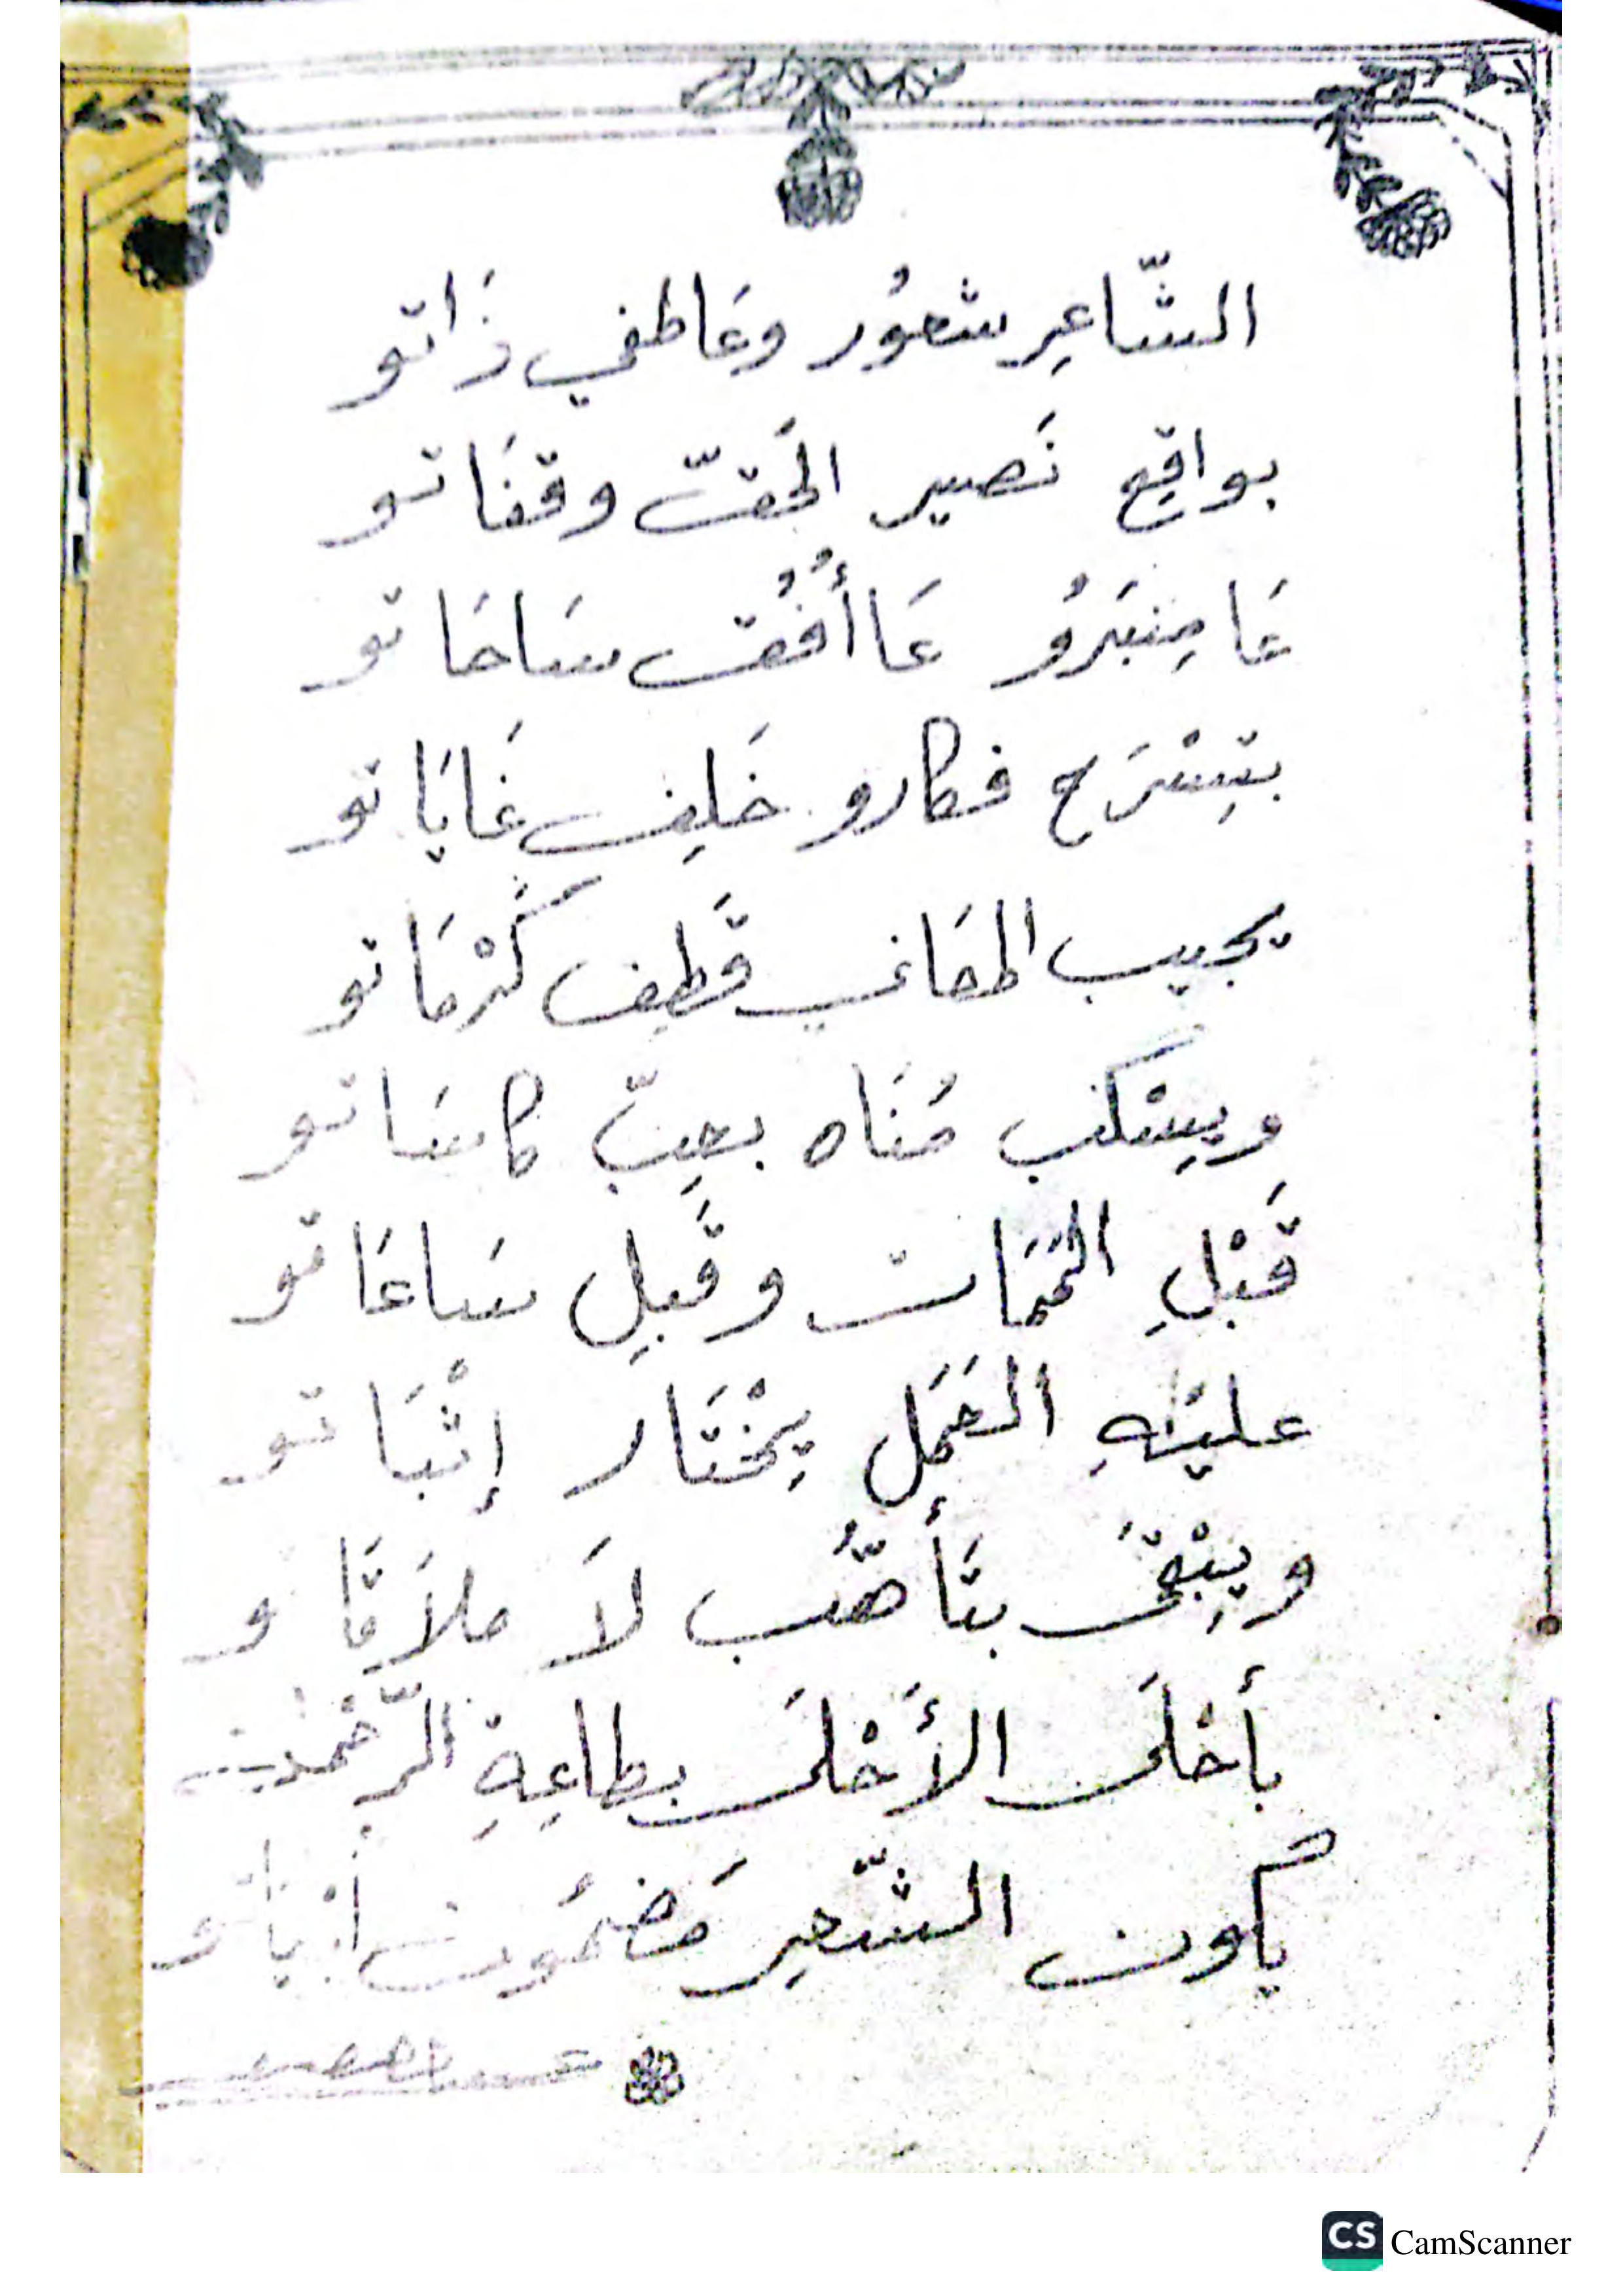 الشّاعِر شعوُر وعَاطفي ذَاتو
بواقِع نَصير الحَقّ وقفَاتو
عَا مِنبَرُو عَا أُفُق سَاحَاتو
بتِسْرَح فكارو خَلِف غَايَاتو
يجيب المعَاني قَطِف كَرْمَاتو
ويِسْكب مُنَاه بعِبّ كاسَاتو
قَبْلِ المَمَات وقَبِل سَاعَاتو
عليَهِ العَمَل يِخْتَار إثْبَاتو
ويِبْقىَ بتَأهُّب لاَ ملاَقَا و
بأحْلَى الأَحْلَى بطاعِةِ الرّحْمٰن
يكون الشّعِر مَضمُون أبْياتو
CS CamScanner